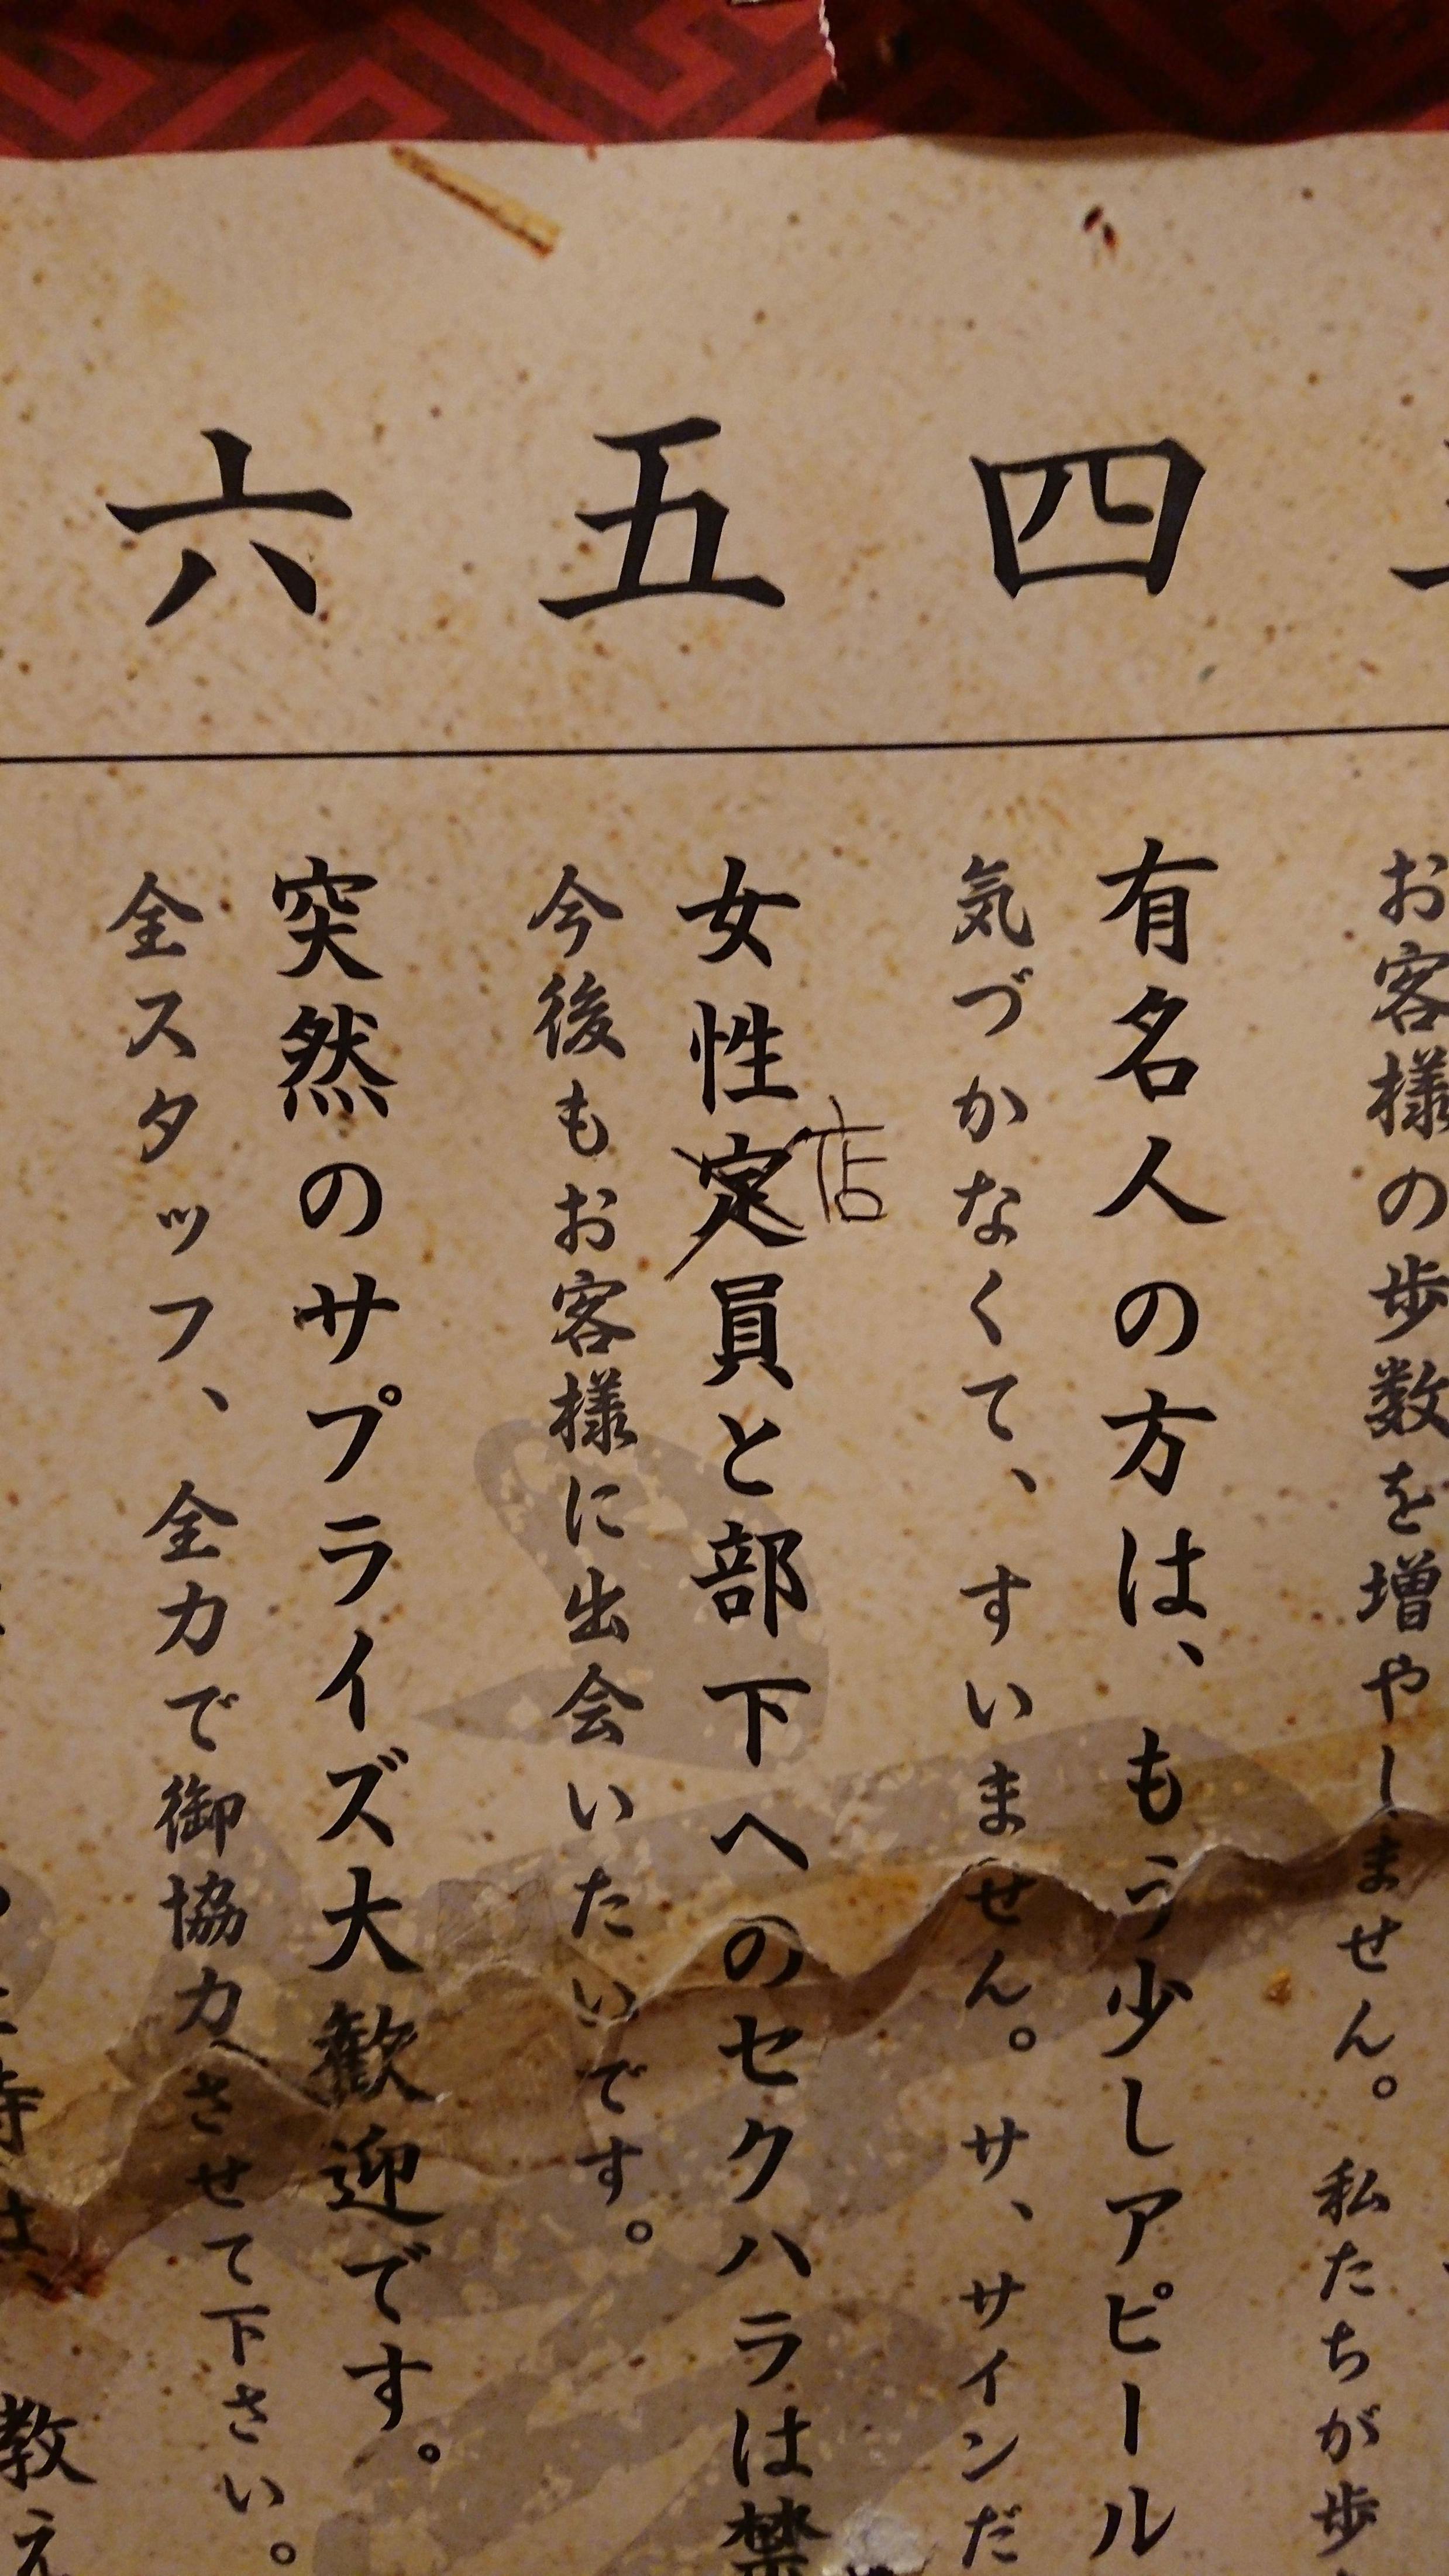 お客様の歩数を増やしません。私たちが歩
四
有名人の方は、もう少しアピール
気づかなくて、すいません。サ、サインだ
五
女性定員と部下へのセクハラは禁
店
今後もお客様に出会いたいです。
六
突然のサプライズ大歓迎です。
全スタッフ、全力で御協力させて下さい。
教え